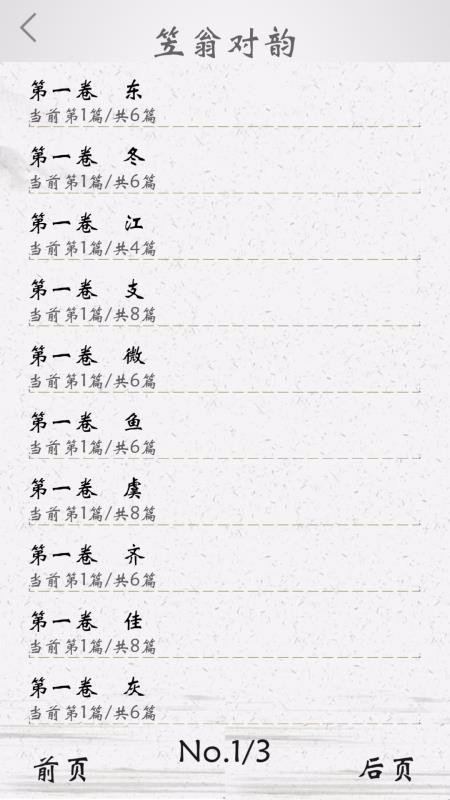 笠翁对韵
第一卷 东
当前第1篇/共6篇
第一卷 冬
当前第1篇/共6篇
第一卷 江
当前第1篇/共4篇
第一卷 支
当前第1篇/共8篇
第一卷 微
当前第1篇/共6篇
第一卷 鱼
当前第1篇/共6篇
第一卷 虞
当前第1篇/共8篇
第一卷 齐
当前第1篇/共6篇
第一卷 佳
当前第1篇/共8篇
第一卷 灰
当前第1篇/共6篇
前页 No.1/3 后页